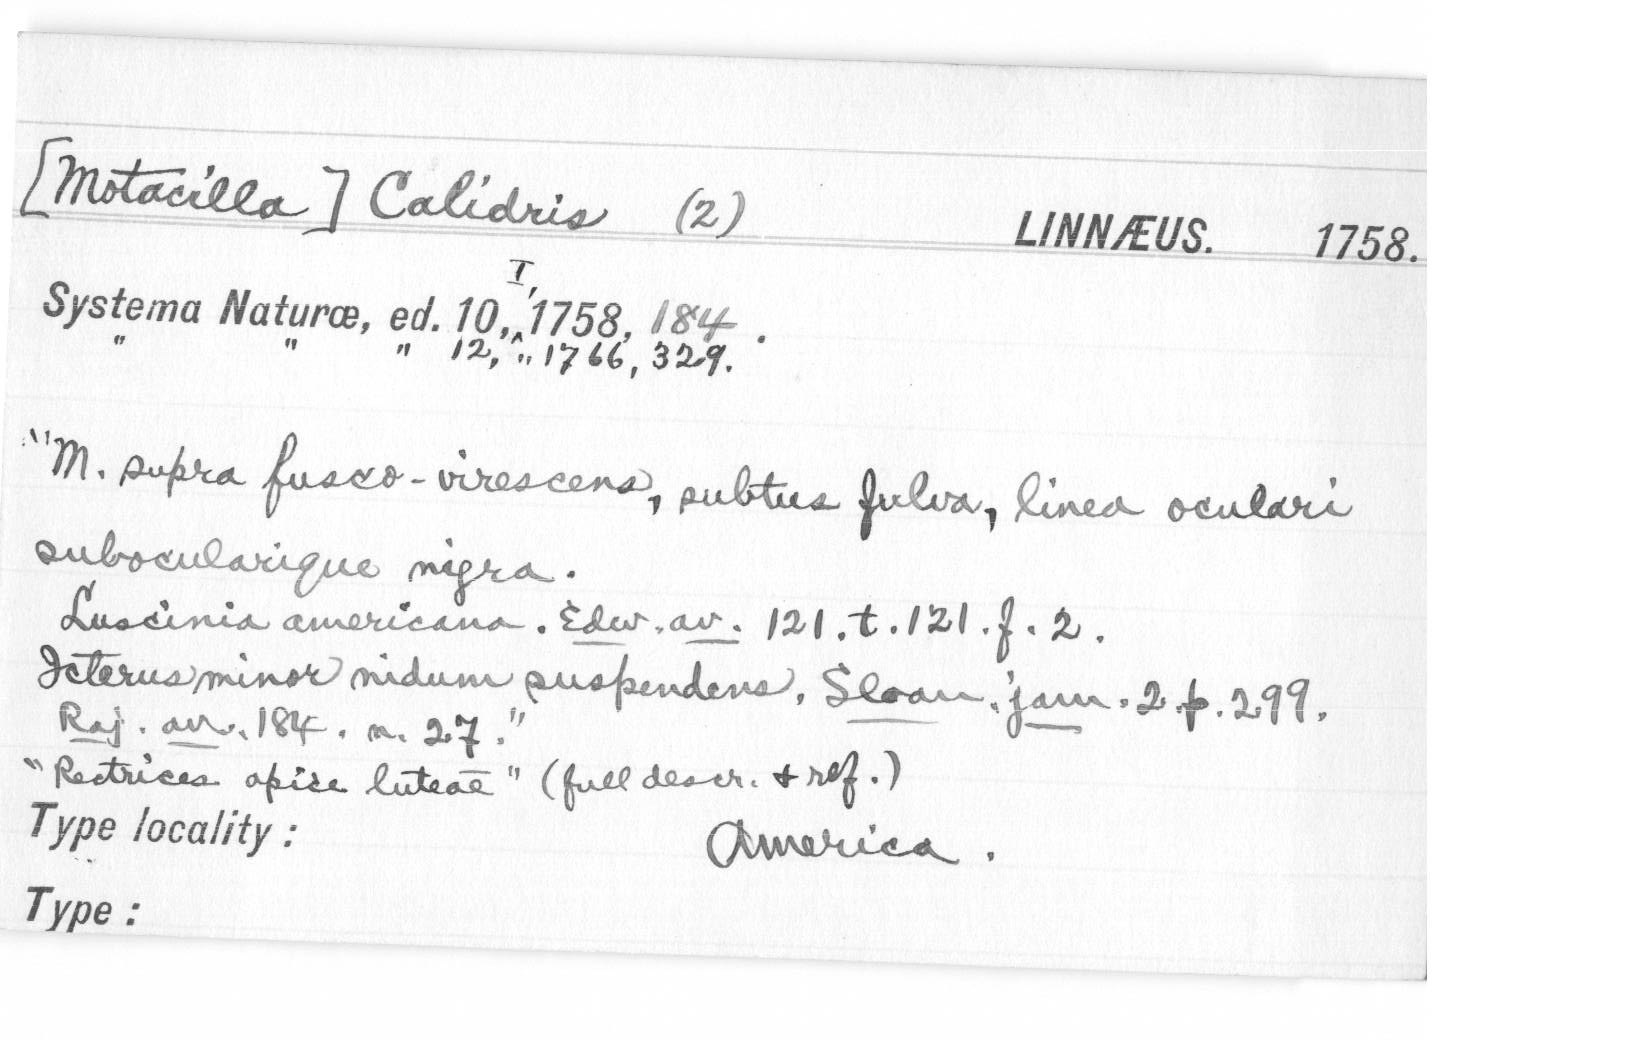 [Motacilla] Calidris (2) LINNÆUS. 1758.
Systema Naturæ, ed. 10, I, 1758, 184.
" " " 12, " 1766, 329.
"M. supra fusco-virescens, subtus fulva, linea oculari
subocularique nigra.
Luscinia americana. Edw. av. 121. t. 121. f. 2.
Icterus minor nidum suspendens. Sloan. jam. 2. p. 299.
Raj. av. 184. n. 27."
"Rectrices apice luteae" (full descr. & ref.)
Type locality: America.
Type: